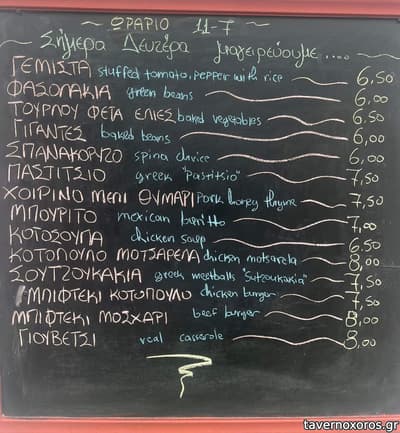 ~ ΩΡΑΡΙΟ 11-7 ~
Σήμερα Δευτέρα μαγειρεύουμε....
ΓΕΜΙΣΤΑ stuffed tomato, pepper with rice 6,50
ΦΑΣΟΛΑΚΙΑ green beans 6,00
ΤΟΥΡΛΟΥ ΦΕΤΑ ΕΛΙΕΣ baked vegetables 6.50
ΓΙΓΑΝΤΕΣ baked beans 6,00
ΣΠΑΝΑΚΟΡΥΖΟ spina chrice 6,00
ΠΑΣΤΙΤΣΙΟ greek "Pastitsio" 7,50
ΧΟΙΡΙΝΟ ΜΕΛΙ ΘΥΜΑΡΙ Pork honey thyme 7,50
ΜΠΟΥΡΙΤΟ mexican buritto 7,00
ΚΟΤΟΣΟΥΠΑ chicken soup 6.50
ΚΟΤΟΠΟΥΛΟ ΜΟΤΣΑΡΕΛΑ chicken motsarela 8,00
ΣΟΥΤΖΟΥΚΑΚΙΑ greek meatballs "Sutzoukakia" 7,50
ΜΠΙΦΤΕΚΙ ΚΟΤΟΠΟΥΛΟ chicken burger 7,50
ΜΠΙΦΤΕΚΙ ΜΟΣΧΑΡΙ beef burger 8,00
ΓΙΟΥΒΕΤΣΙ veal casserole 8,00
tavernoxoros.gr